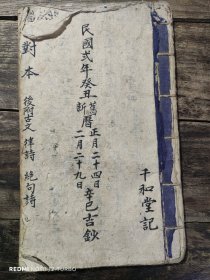 千和堂記
民國弍年癸丑
舊曆正月二十四日
新二月二十九日
辛巳吉鈔
對本
後附古文 律詩 絕句詩
REDMI K30